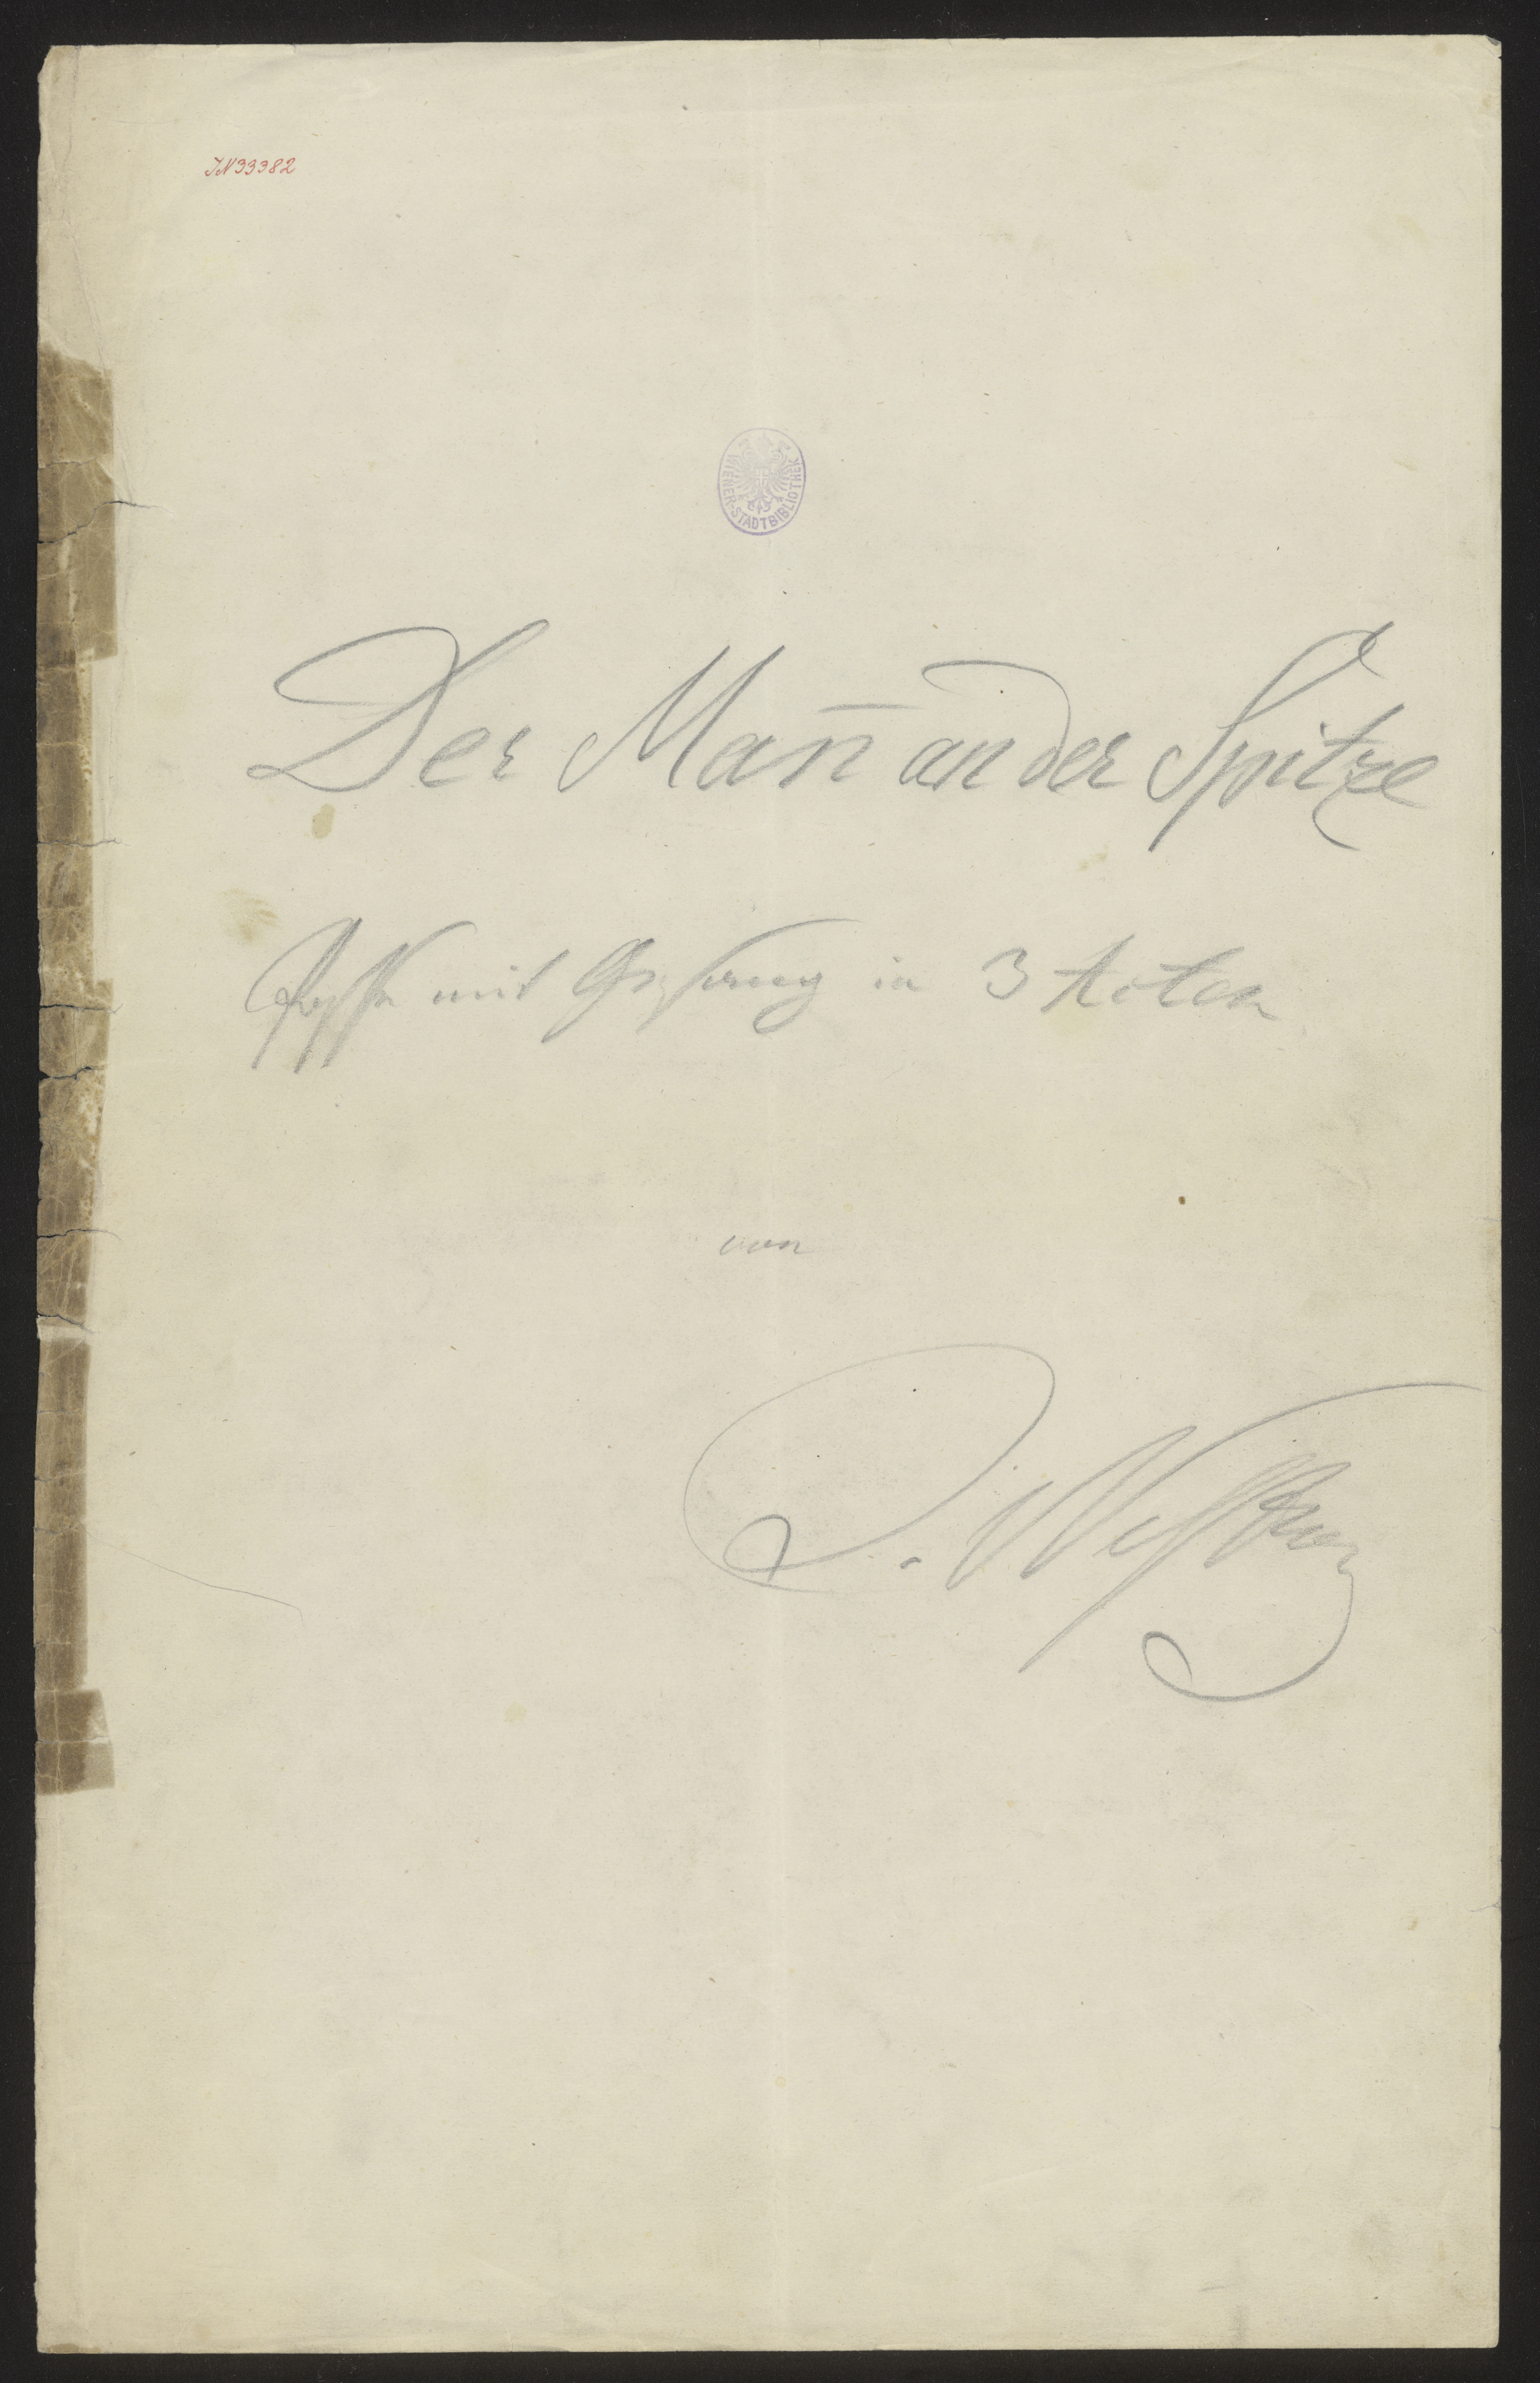 JN 33382
WIENER-STADTBIBLIOTHEK
Der Man̄ an der Spitze
Posse mit Gesang in 3 Acten
von
J. Nestroy